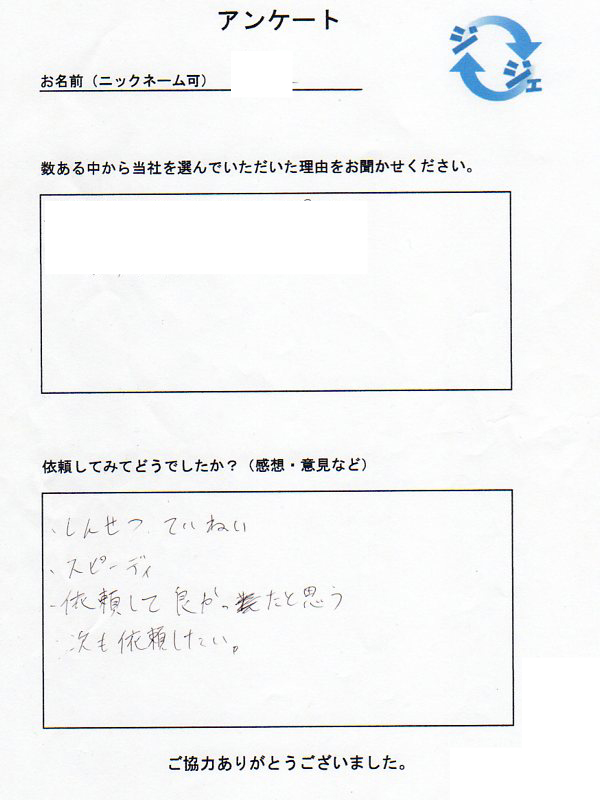 アンケート
ジジェ
お名前（ニックネーム可）
数ある中から当社を選んでいただいた理由をお聞かせください。
依頼してみてどうでしたか？（感想・意見など）
・しんせつ、ていねい
・スピーディ
・依頼して良かったと思う
次も依頼したい。
ご協力ありがとうございました。